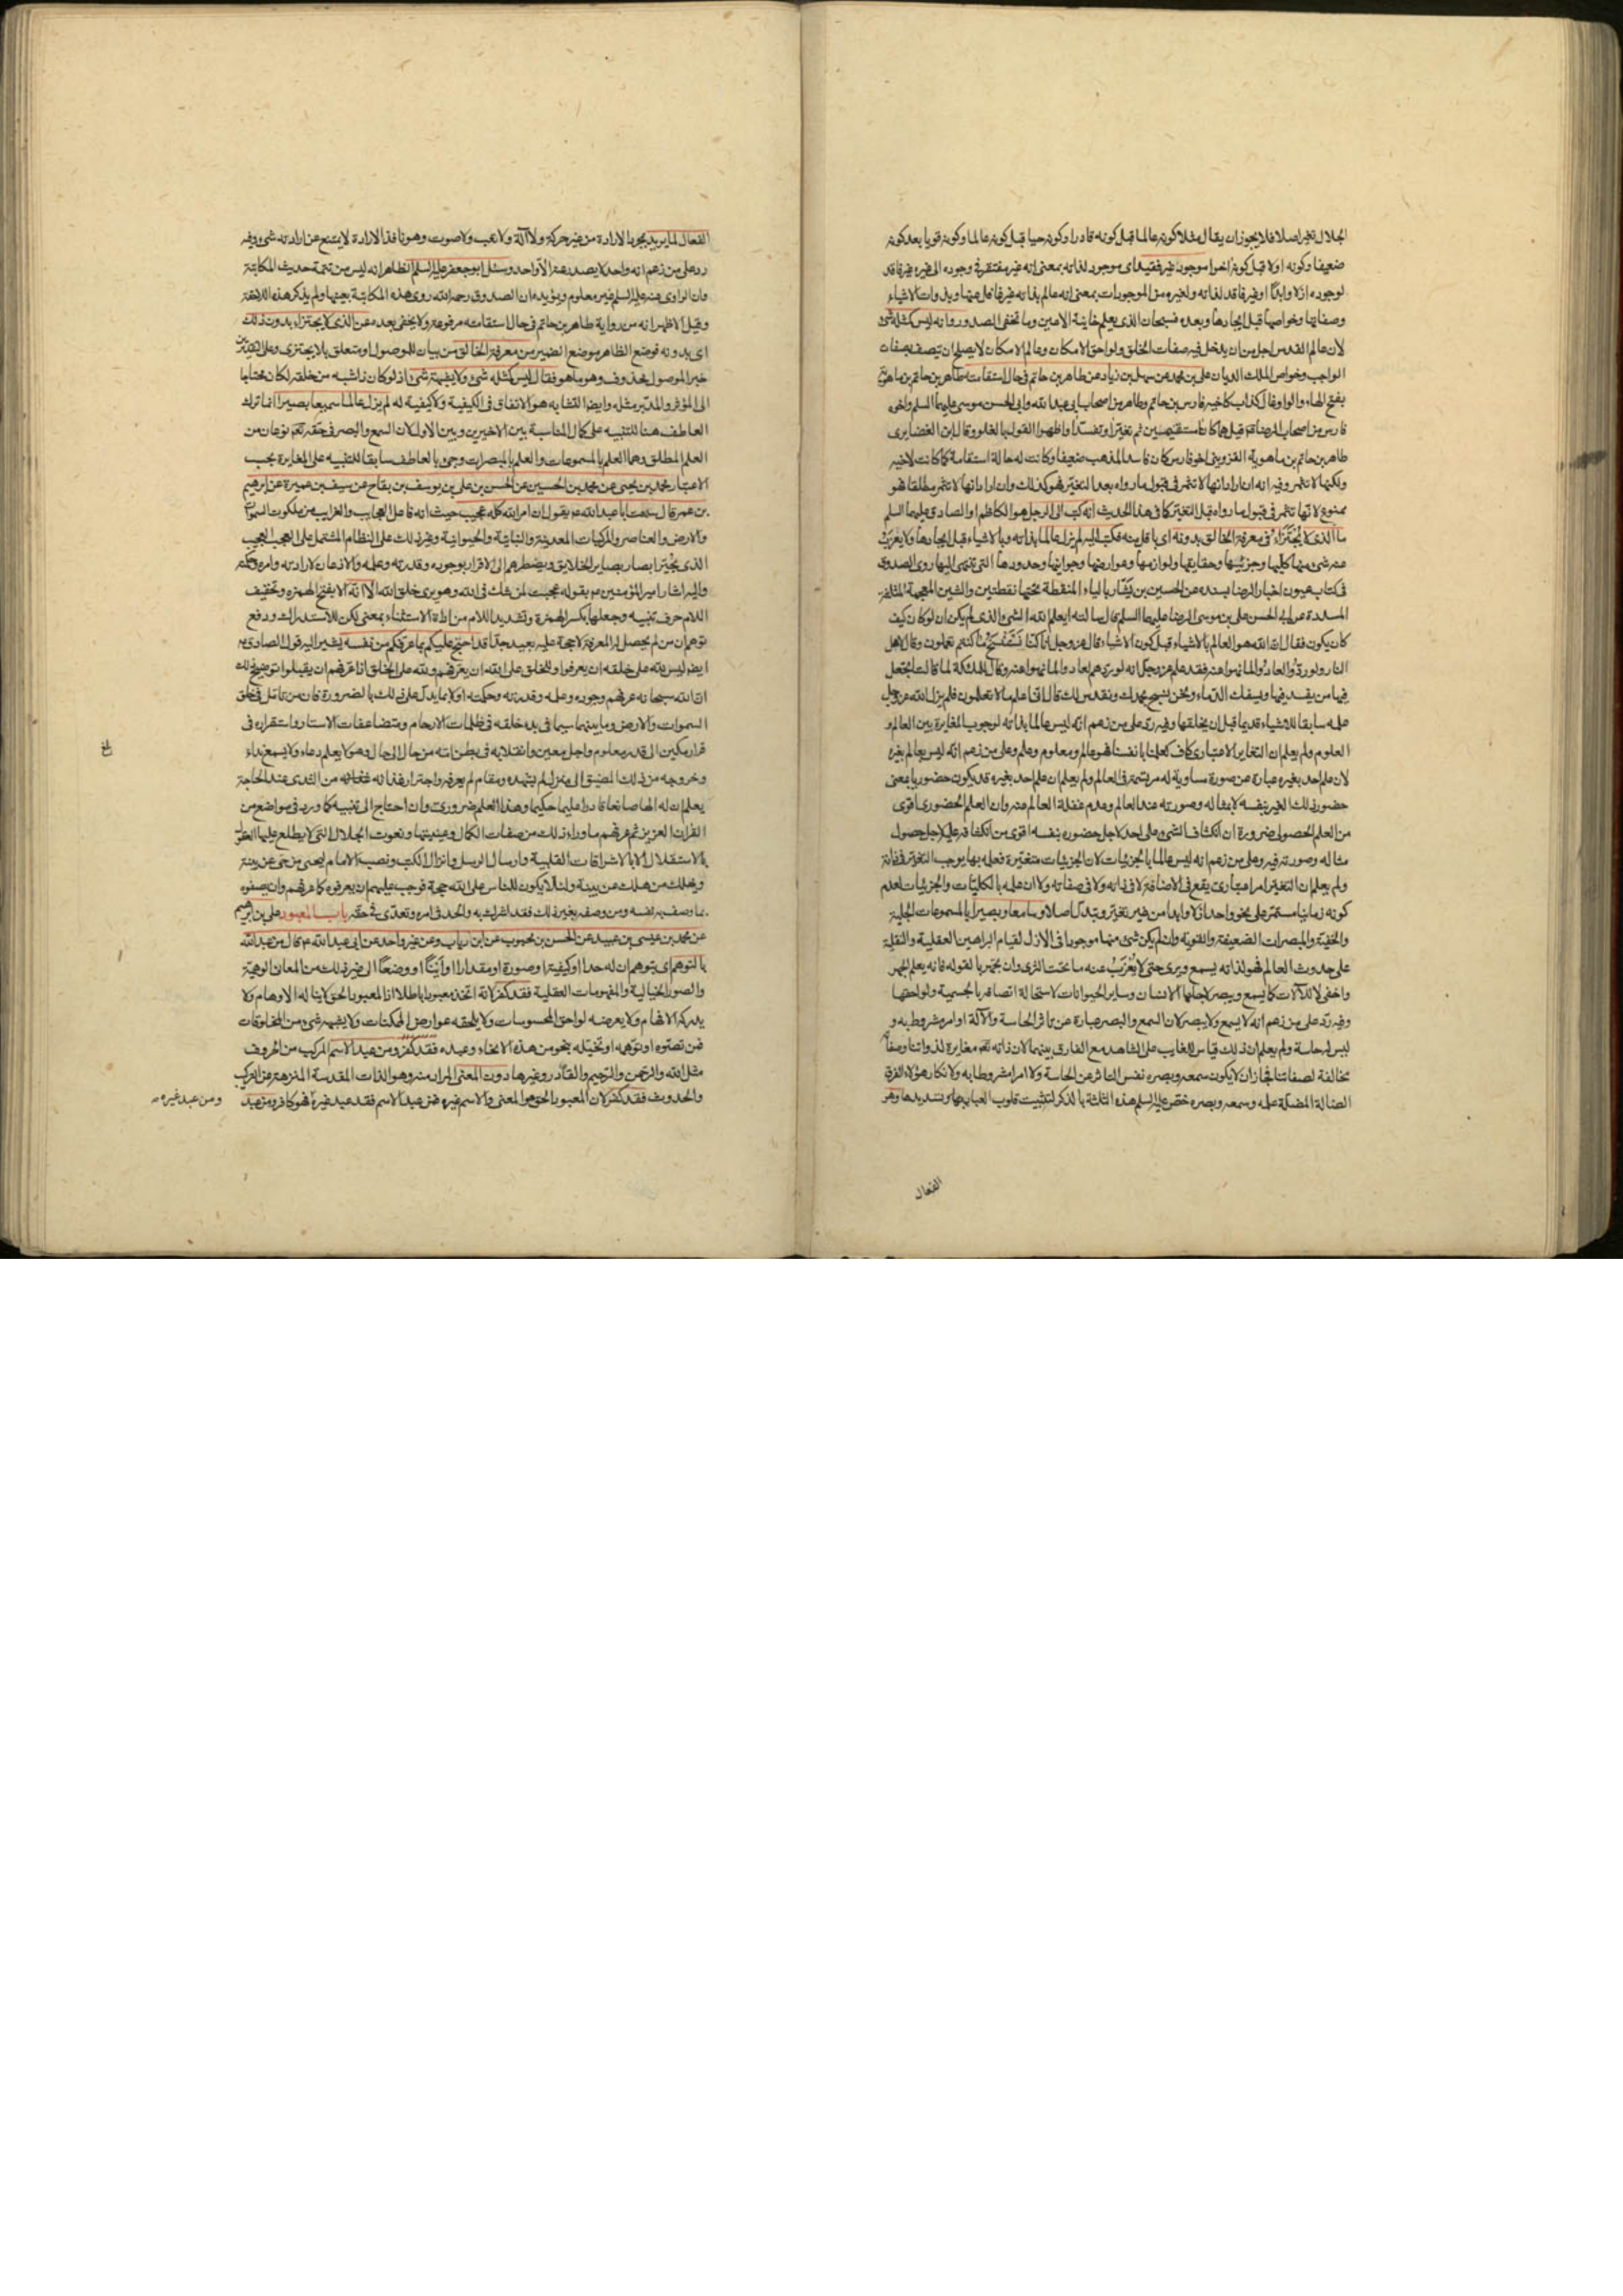 الجلال تغير اصلا فلا يجوز ان يقال مثلا كونه عالما قبل كونه قادرا وكونه حيا قبل كونه عالما وكونه قويا بعد كونه
ضعيفا وكونه اولا قبل كونه اخرا موجود غير فقيد اى موجود لذاته بمعنى انه غير مفتقر فى وجوده الى غيره غير فاقد
لوجوده ازلا وابدا او غير فاقد لذاته ولغيره من الموجودات بمعنى انه عالم بذاته غير غافل عنها وبذوات الاشياء
وصفاتها وخواصها قبل ايجادها وبعده فسبحان الذى يعلم خاينة الاعين وما تخفى الصدور وانه ليس كمثله شئ
لان عالم القدس اجل من ان يدخل فيه صفات الخلق ولواحق الامكان وعالم الامكان لا يصلح ان يتصف بصفات
الواجب وخواص الملك الديان على بن محمد عن سهل بن زياد عن طاهر بن حاتم فى حال استقامته طاهر بن حاتم بن ماهويه
بفتح الهاء والواو قال كذاب كاخيه فارس بن حاتم وطاهر من اصحاب ابى عبد الله وابى الحسن موسى عليهما السلم واخوه
فارس من اصحاب الرضا قيل هما كانا مستقيمين ثم تغيرا وتفسدا واظهرا القول بالغلو وقال ابن الغضايرى
طاهر بن حاتم بن ماهويه القزوينى اخو فارس كان فاسد المذهب ضعيفا وكانت له حالة استقامة كما كانت لاخيه
ولكنها لا تثمر وفيه انه ان اراد انها لا تثمر فى قبول ما رواه بعد التغير فهو كذلك وان اراد انها لا تثمر مطلقا فهو
ممنوع لانها تثمر فى قبول ما رواه قبل التغير كما فى هذا الحديث انه كتب الى الرجل هو الكاظم او الصادق عليهما السلم
ما الذى لا يجتزاء فى معرفة الخالق بدونه اى باقل منه فكتب اليه لم يزل عالما بذاته وبالاشياء قبل ايجادها ولا يعزب
عنه شئ منها كليها وجزئيها وحقايقها ولوازمها وعوارضها وجواينها وحدودها التى تنتهى اليها روى الصدوق
فى كتاب عيون اخبار الرضا بسنده عن الحسين بن بشار بالياء المنقطة تحتها نقطتين والشين المعجمة المثلثة
المسددة عن ابى الحسن على بن موسى الرضا عليهما السلم قال سالته ايعلم الله الشئ الذى لم يكن ان لو كان كيف
كان يكون فقال ان الله هو العالم بالاشياء قبل كون الاشياء قال عز وجل انا كنا نستنسخ ما كنتم تعملون وقال لاهل
النار ولو ردوا لعادوا لما نهوا عنه فقد علم عز وجل انه لو ردهم لعادوا لما نهوا عنه وقال للملئكة لما قالت اتجعل
فيها من يفسد فيها ويسفك الدماء ونحن نسبح بحمدك ونقدس لك قال انى اعلم ما لا تعلمون فلم يزل الله عز وجل
علمه سابقا للاشياء قديما قبل ان يخلقها وفيه رد على من زعم انه ليس عالما بذاته لوجوب المغايرة بين العالم و
المعلوم ولم يعلم ان التغاير الاعتبارى كاف كعلمنا بانفسنا فهو عالم ومعلوم وعلم وعلى من زعم انه ليس بعالم بغيره
لان علم احد بغيره عبارة عن صورة مساوية له مرتسمة فى العالم ولم يعلم ان علم احد بغيره قد يكون حضوريا بمعنى
حضور ذلك الغير بنفسه لا بمثاله وصورته عند العالم وعدم غفلة العالم عنه وان العلم الحضورى اقوى
من العلم الحصولى ضرورة ان انكشاف الشئ على احد لاجل حضوره بنفسه اقوى من انكشافه عليه لاجل حصول
مثاله وصورته فيه وعلى من زعم انه ليس عالما بالجزئيات لان الجزئيات متغيرة فعلمه بها يوجب التغير فى ذاته
ولم يعلم ان التغير امر اعتبارى يقع فى الاضافة لا فى ذاته ولا فى صفاته ولا ان علمه بالكليات والجزئيات لعدم
كونه زمانيا مستمر على نحو واحد ازلا وابدا من غير تغير وتبدل اصلا وسامعا وبصيرا بالمسموعات الجلية
والخفية والمبصرات الضعيفة والقوية وان لم يكن شئ منها موجودا فى الازل لقيام البراهين العقلية والنقلية
على حدوث العالم فهو لذاته يسمع ويرى حتى لا يعزب عنه ما تحت الثرى وان تجهر بالقول فانه يعلم الجهر
واخفى لا لالات كما يسمع ويبصر لاجلها الانسان وساير الحيوانات لاستحالة اتصافه بالجسمية ولواحقها
وفيه رد على من زعم انه لا يسمع ولا يبصر لان السمع والبصر عبارة عن تاثر الحاسة والالة او امر مشروط به و
ليس له حاسة ولم يعلم ان ذلك قياس للغايب على الشاهد مع الفارق بينهما لان ذاته تعم مغايرة لذواتنا وصفاته
مخالفة لصفاتنا فجاز ان لا يكون سمعه وبصره نفس التاثر عن الحاسة ولا امرا مشروطا به ولانكار هؤلاء الفرق
الضالة المضلة علمه وسمعه وبصره خص عليه السلم هذه الثلثة بالذكر لتثبيت قلوب العباد بها وتسديدها وهو
الفعال
الفعال لما يريد بمجرد الارادة من غير حركة ولا الة ولا تعب ولا صوت وهو نافذ الارادة لا يمتنع عن ارادته شئ وفيه
رد على من زعم انه واحد لا يصدر عنه الا واحد وسئل ابو جعفر عليه السلم الظاهر انه ليس من تتمة حديث المكاتبة
وان الراوى عنه عليه السلم غير معلوم ويؤيده ان الصدوق رحمه الله روى هذه المكاتبة بعينها ولم يذكر هذه اللاحقة
وقيل الاظهر انه من رواية طاهر بن حاتم فى حال استقامته مرفوعة ولا يخفى بعده عن الذى لا يجتزاء بدون ذلك
اى بدونه فوضع الظاهر موضع الضمير من معرفة الخالق من بيان للموصول او متعلق بلا يجتزى وعلى التقديرين
خبر الموصول محذوف وهو ما هو فقال ليس كمثله شئ ولا يشبهه شئ اذ لو كان ذا شبه من خلقه لكان محتاجا
الى المؤثر والمدبر مثله وايضا التشابه هو الاتفاق فى الكيفية ولا كيفية له لم يزل عالما سميعا بصيرا انما ترك
العاطف هنا للتنبيه على كمال المناسبة بين الاخيرين وبين الاول لان السمع والبصر فى حقه تعم نوعان من
العلم المطلق وهما العلم بالمسموعات والعلم بالمبصرات وجئ بالعاطف سابقا للتنبيه على المغايرة بحسب
الاعتبار محمد بن يحيى عن محمد بن الحسين عن الحسن بن على بن يوسف بن بقاح عن سيف بن عميرة عن ابرهيم
بن عمر قال سمعت ابا عبد الله ع يقول ان امر الله كله عجيب حيث انه فاعل العجايب والغرايب من ملكوت السموات
والارض والعناصر والمركبات المعدنية والنباتية والحيوانية وغير ذلك على النظام المشتمل على العجب العجيب
الذى يحير ابصار بصاير الخلايق ويضطرهم الى الاقرار بوجوده وقدرته وعلمه والاذعان لارادته وامره وحكمه
واليه اشار امير المؤمنين ع بقوله عجبت لمن شك فى الله وهو يرى خلق الله الا انه الا بفتح الهمزه وتخفيف
اللام حرف تنبيه وجعلها بكسر الهمزة وتشديد اللام من اداة الاستثناء بمعنى لكن للاستدراك ودفع
توهم ان من لم يحصل له المعرفة لا حجة عليه بعيد جدا قد احتج عليكم بما عرفكم من نفسه يشير اليه قول الصادق ع
ايضا ليس لله على خلقه ان يعرفوا وللخلق على الله ان يعرفهم ولله على الخلق اذا عرفهم ان يقبلوا توضيح ذلك
ان الله سبحانه عرفهم وجوده وعلمه وقدرته وحكمته اولا بما يدل على ذلك بالضرورة فان من تامل فى خلق
السموات والارض وما بينهما سيما فى بدء خلقه فى ظلمات الارحام ومتضاعفات الاستار واستقراره فى
قرار مكين الى قدر معلوم واجل معين وانقلابه فى بطن امه من حال الى حال وهو لا يعلم دعاء ولا يسمع نداء
وخروجه من ذلك المضيق الى منزل لم يشهده ومقام لم يعرفه واجتراره غذائه من الثدى عند الحاجة
يعلم ان له الها صانعا قادرا عليما حكيما وهذا العلم ضرورى وان احتاج الى تنبيه كما ورد فى مواضع من
القران العزيز ثم عرفهم ما وراء ذلك من صفات الكمال وعينيتها ونعوت الجلال التى لا يطلع عليها العقل
بالاستقلال الا بالاشراقات القلبية وارسال الرسل وانزال الكتب ونصب الامام ليحيى من حى عن بينة
ويهلك من هلك عن بينة ولئلا يكون للناس على الله حجة فوجب عليهم ان يعرفوه كما عرفهم وان يصفوه
بما وصف به نفسه ومن وصفه بغير ذلك فقد اشرك به والحد فى امره وتعدى فى حقه باب المعبود على بن ابرهيم
عن محمد بن عيسى بن عبيد عن الحسن بن محبوب عن ابن رياب وعن غير واحد عن ابى عبد الله ع قال من عبد الله
بالتوهم اى بتوهم ان له حدا او كيفية او صورة او مقدارا او اينا او وضعا الى غير ذلك من المعان الوهمية
والصور الخيالية والمفهومات العقلية فقد كفر لانه اتخذ معبودا باطلا اذ المعبود بالحق لا يناله الاوهام ولا
يدركه الافهام ولا يعرضه لواحق المحسوسات ولا يلحقه عوارض الممكنات ولا يشبهه شئ من المخلوقات
فمن تصوره او توهمه او تخيله بنحو من هذه الانحاء وعبده فقد كفر ومن عبد الاسم المركب من الحروف
مثل الله والرحمن والرحيم والقادر وغيرها دون المعنى المراد منه وهو الذات المقدسة المنزهة عن التركيب
والحدوث فقد كفر لان المعبود بالحق هو المعنى والاسم غيره فمن عبد الاسم فقد عبد غيره فهو كافر ومن عبد
ومن عبد غيره